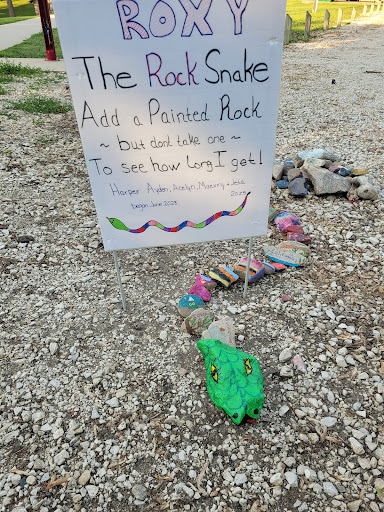 ROXY
The Rock Snake
Add a Painted Rock
~ but dont take one ~
To see how long I get!
Harper Ayden,
Began June 2023